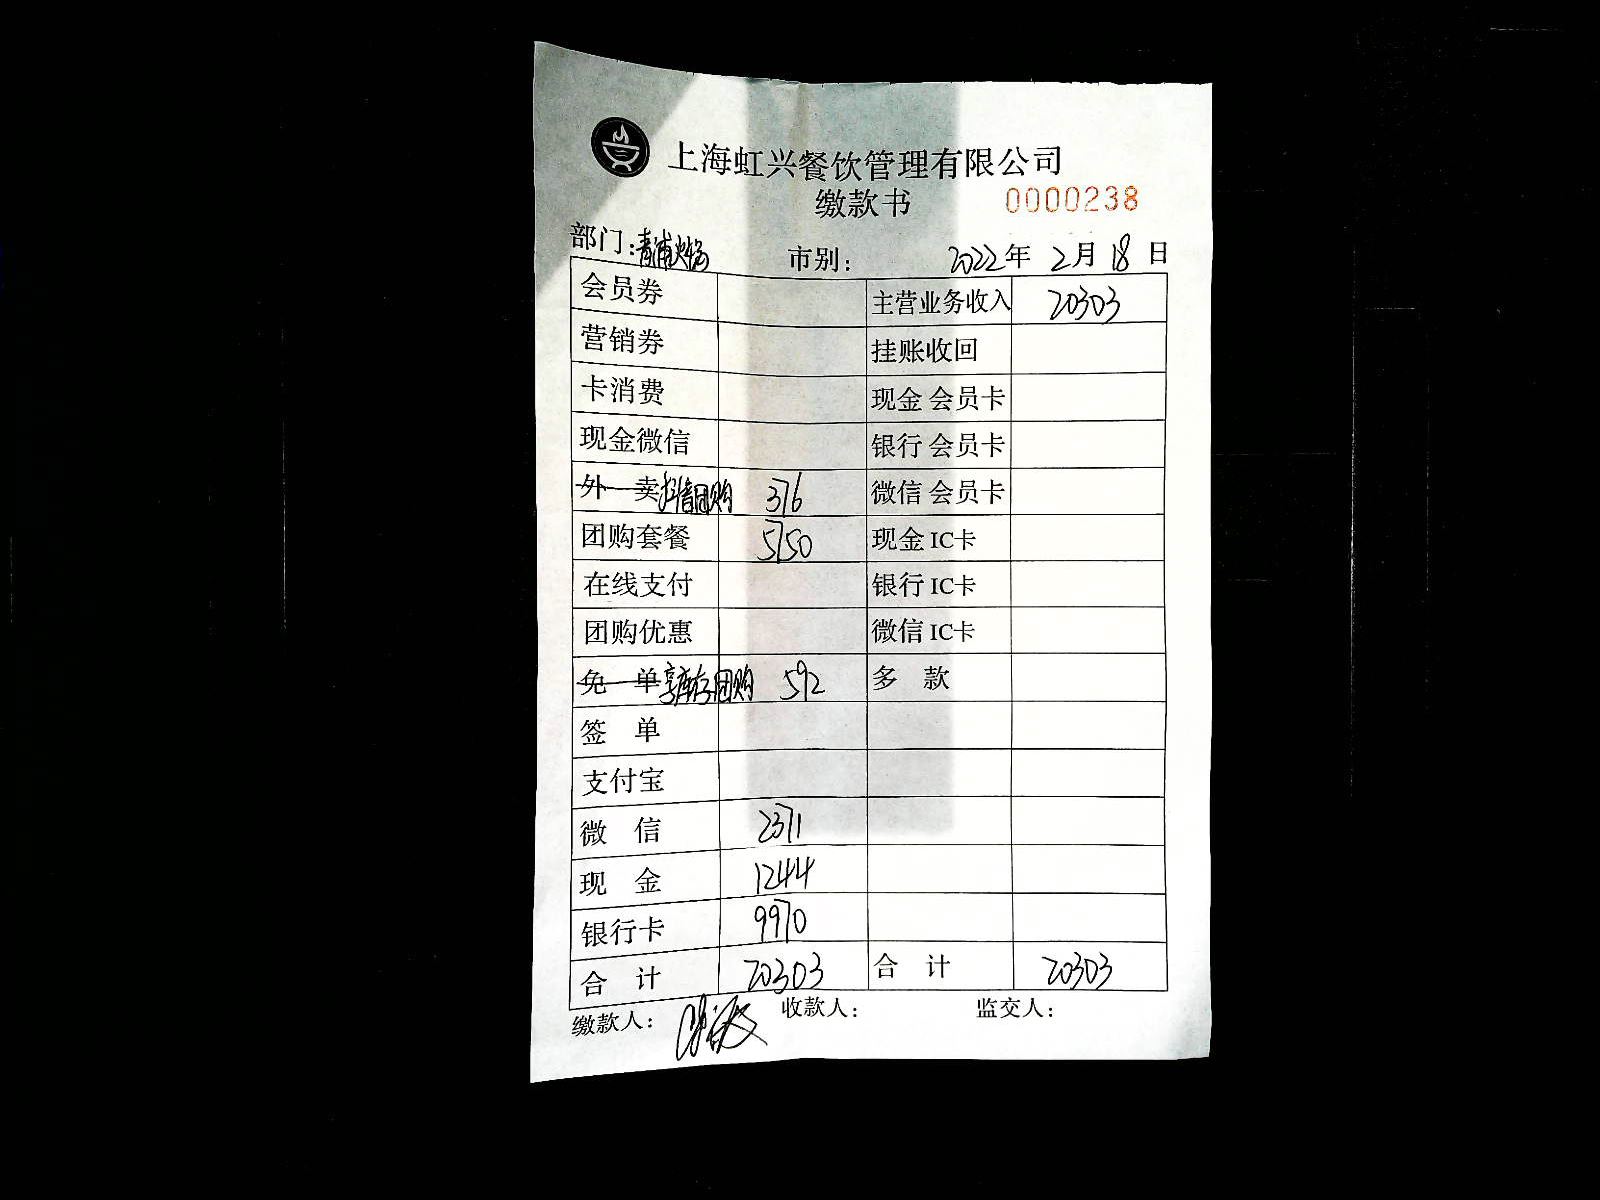 上海虹兴餐饮管理有限公司
缴款书 0000238
部门:青浦 市别: 2022年 2月 18日
会员券 主营业务收入 20303
营销券 挂账收回
卡消费 现金 会员卡
现金微信 银行 会员卡
外 卖 抖音团购 376 微信 会员卡
团购套餐 5750 现金 IC卡
在线支付 银行 IC卡
团购优惠 微信 IC卡
免 单 享库存团购 592 多 款
签 单
支付宝
微 信 2371
现 金 1244
银行卡 9970
合 计 20303 合 计 20303
缴款人: 收款人: 监交人: